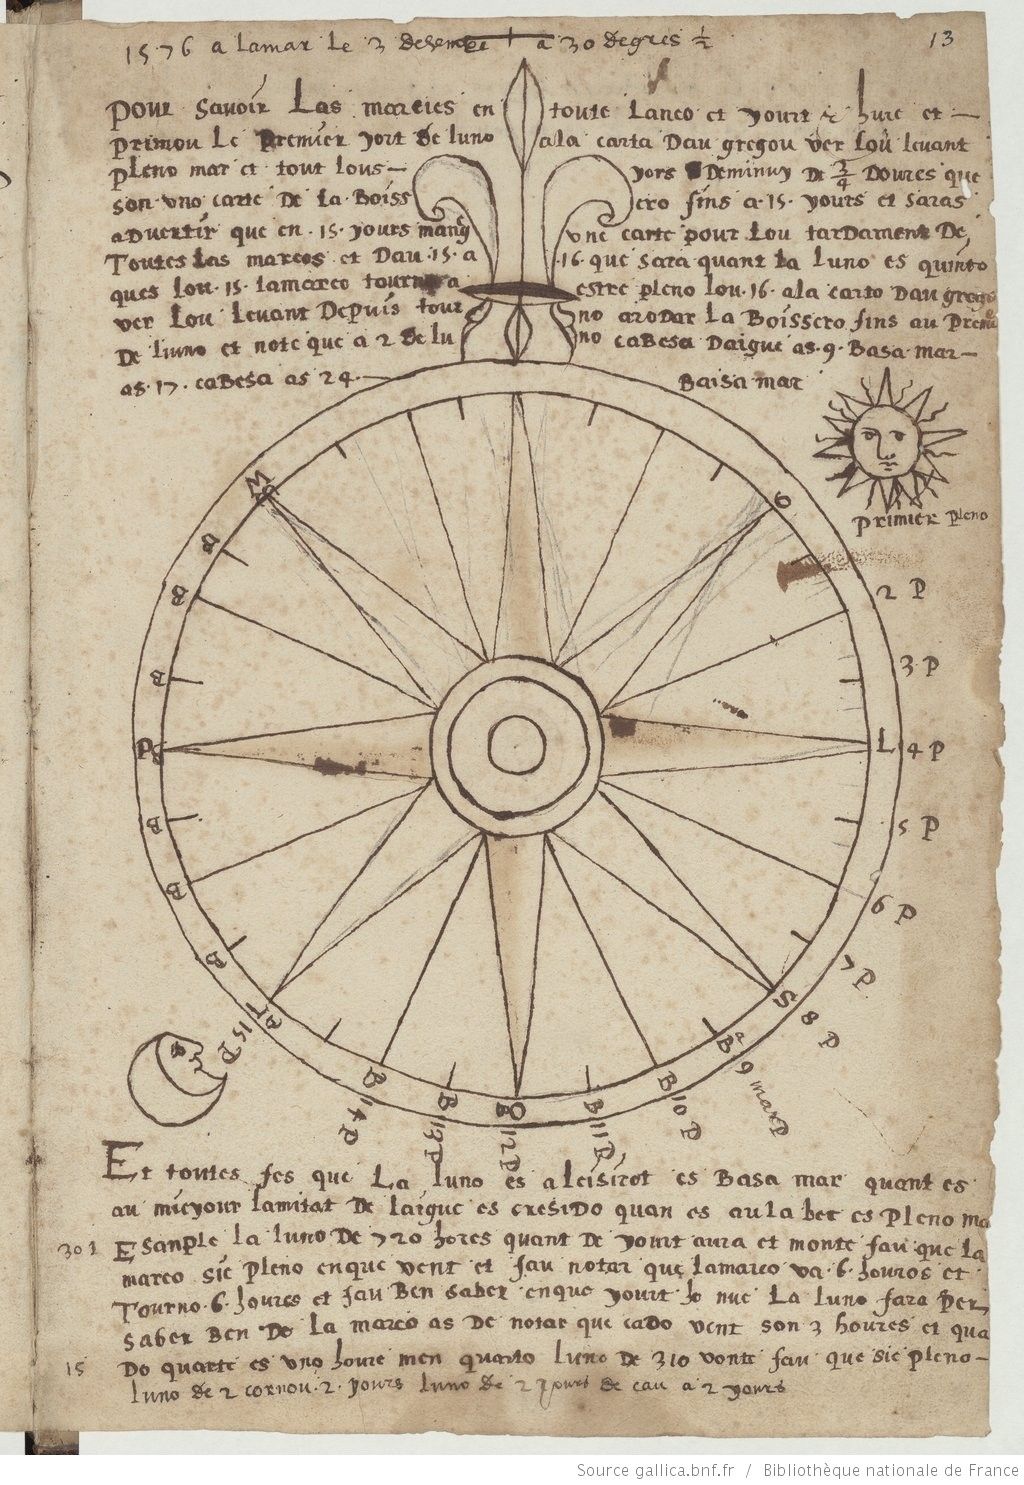 1576 a lamar le 3 desembre a 30 degres ½
13
pour savoir Las mareies en toute Lanco et yourt & hure et —
primou Le premier yort de luno ala carta Dau gregou ver Lou levant
pleno mar et tout lous — yors Deminuy De 3/4 Doures que
son uno carte De La Boiss ero fins a .15. yours et saras
aDvertir que en .15. yours mang une carte pour Lou tarDament De
Toutes Las mareos et Dau .15. a .16. que sara quant La luno es quinto
ques Lou .15. Lamareo tourno a estre pleno lou .16. ala carto Dau grego
ver Lou Levant Depuis tout no aroDar La Boissero fins au premi
De luno et note que a 2 de lu no caBesa Daigue as .9. Basa mar —
as .17. caBesa as 24 — Baisa mar
primier pleno
M
G
B
B
B
2 P
3 P
L 4 P
5 P
6 P
7 P
S 8 P
B 9 mar P
B 10 P
B 11 P
12 P
B 13 P
B 14 P
15 P
B
B
B
Et toutes fes que La luno es aleisirot es Basa mar quant es
au mieyour lamitat De Laigue es cresiDo quan es au la bec es pleno ma
301
Esanple la luno De 720 hores quant De yourt aura et monte fau que la
mareo sie pleno enque vent et fau notar que lamareo va .6. houros et
Tourno .6. houres et fau Ben saber enque yourt ho nue La luno fara per
saber Ben De La mareo as De notar que caDo vent son 3 houres et qua
15
Do quarte es uno houre men quanto luno De 310 vonte fau que sie pleno —
luno de 2 cornou .2. yours luno de 2 yours de cau a 2 yours
Source gallica.bnf.fr / Bibliothèque nationale de France